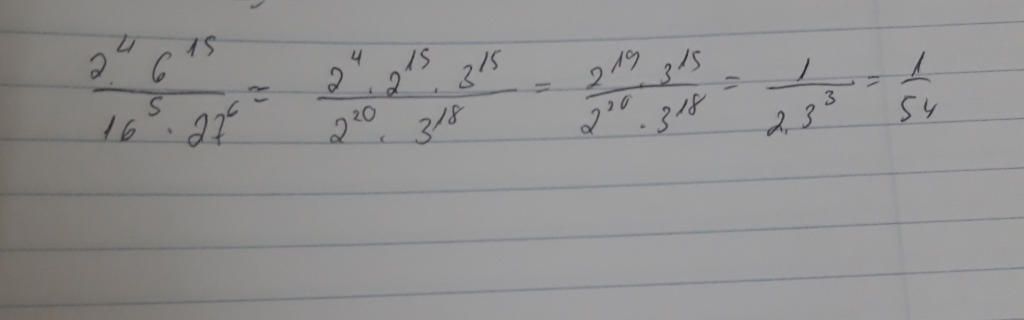 2⁴. 6¹⁵ / 16⁵ . 27⁶ = 2⁴ . 2¹⁵ . 3¹⁵ / 2²⁰ . 3¹⁸ = 2¹⁹ . 3¹⁵ / 2²⁰ . 3¹⁸ = 1 / 2.3³ = 1 / 54